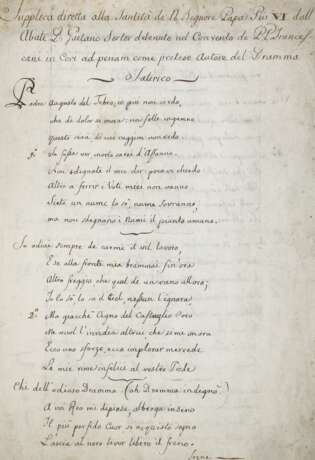 Supplica diretta alla Santità di N. Signore Papa Pio VI dall'
Abate D. Gaetano Sertor detenuto nel Convento de P.P. Francescani
in Cori ad penam come preteso Autore del Dramma
Satirico
Padre Augusto del Tebro, io non
che di dolor si mora: mai folle inganno
Questi
1.º Io fosse ver, morto sarei d'Affanno.
Non sdegnate il mio dir: pena vi chiedo
Altro a ferir i Voti miei non vanno
Siete un nume lo so, nume Sovrano,
ma non sdegnano i Numi il pianto umano.
Io odiai sempre de carmi il vil lavoro,
E se alla fronte mia bramai fin'ora
Altro freggio che quel de un vano alloro;
Io lo so, lo sa il Ciel, nessun l'ignora
2.º Ma giacchè Cigno del Castaglio Coro
Mi vuol l'invidia altrui che
Ecco uno sforzo, ecco implorar mercede
Le mie rime infelici al vostro Piede
Chi dell'odioso Dramma (ah Dramma indegno!)
A voi Reo mi dipinse, alberga in seno
Il più perfido Cuor
Lascia al nero livor libero il freno.